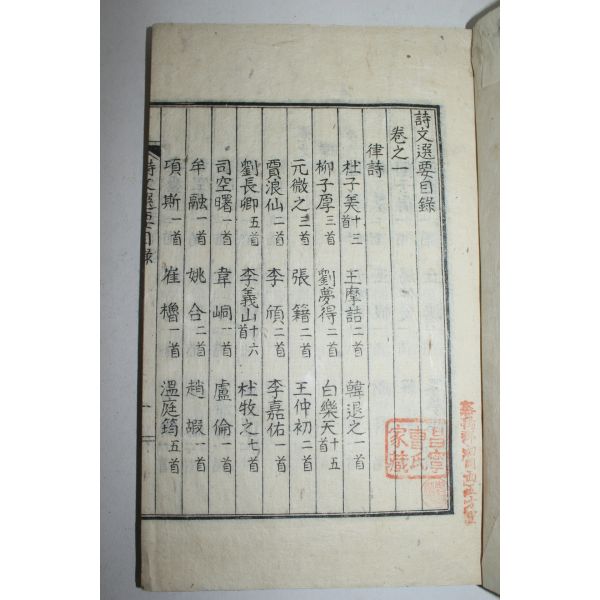 詩文選要目錄
卷之一
律詩
杜子美十三首 王摩詰二首 韓退之一首
柳子厚三首 劉夢得二首 白樂天十五首
元微之二首 張籍二首 王仲初二首
賈浪仙二首 李頎二首 李嘉佑一首
劉長卿五首 李義山十六首 杜牧之七首
司空曙一首 韋峒一首 盧倫一首
牟融一首 姚合二首 趙嘏一首
項斯一首 崔櫓一首 溫庭筠五首
詩文選要目錄
一
昌寧
曺氏
家藏